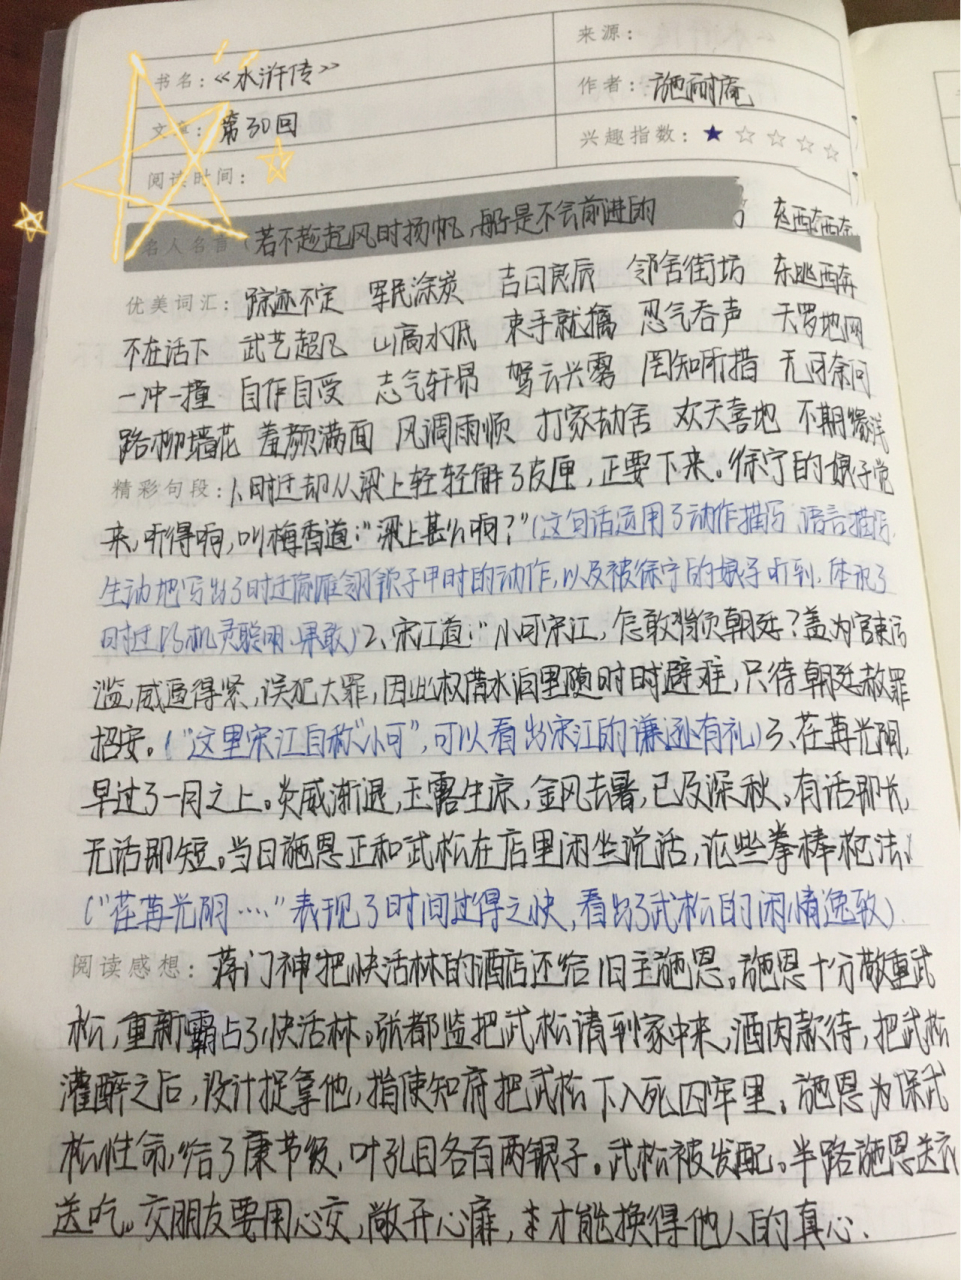 来源：
书名：《水浒传》
作者：施耐庵
文章：第30回
兴趣指数：★☆☆☆☆
阅读时间：
名人名言（若不趁起风时扬帆，船是不会前进的
优美词汇：踪迹不定 军民涂炭 吉日良辰 邻舍街坊 东逃西奔
不在话下 武艺超凡 山高水低 束手就擒 忍气吞声 天罗地网
一冲一撞 自作自受 志气轩昂 驾云兴雾 罔知所措 无可奈何
路柳墙花 羞颜满面 风调雨顺 打家劫舍 欢天喜地 不期
精彩句段：1、时迁却从梁上轻轻解了皮匣，正要下来。徐宁的娘子觉
来，听得响，叫梅香道：“梁上甚么响？”（这句话运用了动作描写、语言描写，
生动地写出了时迁偷雁翎锁子甲时的动作，以及被徐宁的娘子听到，体现了
时迁的机灵聪明、果敢）2、宋江道：“小可宋江，怎敢背负朝廷？盖为官吏污
滥，威逼得紧，误犯大罪，因此权借水泊里随时避难，只待朝廷赦罪
招安。（“这里宋江自称“小可”，可以看出宋江的谦逊有礼）3、荏苒光阴，
早过了一月之上。炎威渐退，玉露生凉，金风去暑，已及深秋。有话即长，
无话即短。当日施恩正和武松在店里闲坐说话，论些拳棒枪法、
（“荏苒光阴……”表现了时间过得之快，看出了武松的闲情逸致）
阅读感想：蒋门神把快活林的酒店还给旧主施恩。施恩十分敬重武
松，重新霸占了快活林。张都监把武松请到家中来，酒肉款待，把武松
灌醉之后，设计捉拿他，指使知府把武松下入死囚牢里。施恩为保武
松性命，给了康节级，叶孔目各百两银子。武松被发配。半路施恩送衣
送吃。交朋友要用心交，敞开心扉，才能换得他人的真心。